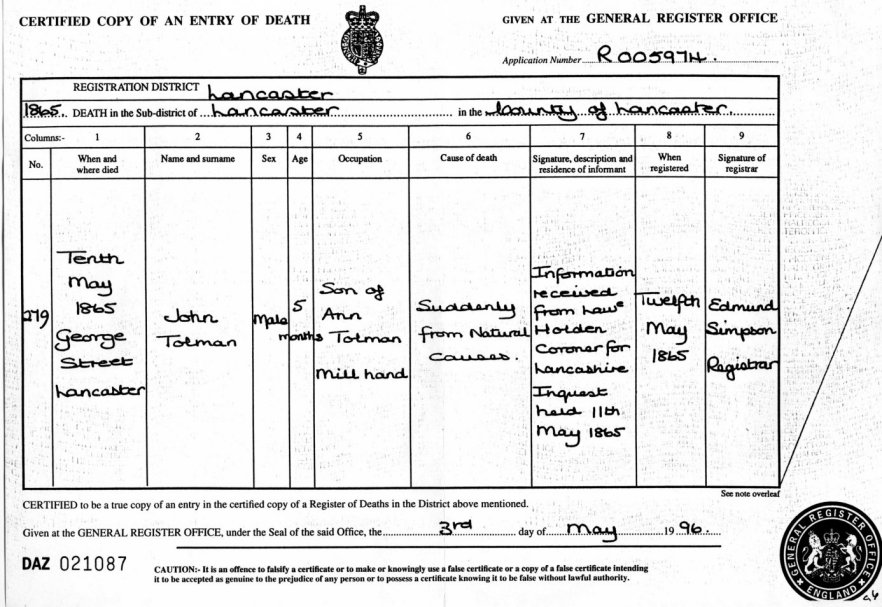 CERTIFIED COPY OF AN ENTRY OF DEATH
GIVEN AT THE GENERAL REGISTER OFFICE
Application Number R005974.
REGISTRATION DISTRICT Lancaster
1865. DEATH in the Sub-district of Lancaster in the County of Lancaster.
Columns:- 1 2 3 4 5 6 7 8 9
No. When and where died Name and surname Sex Age Occupation Cause of death Signature, description and residence of informant When registered Signature of registrar
279
Tenth
May
1865
George
Street
Lancaster
John
Tolman
Male
5
months
Son of
Ann
Tolman
Mill hand
Suddenly
from Natural
Causes.
Information
received
from Lawe
Holden
Coroner for
Lancashire
Inquest
held 11th
May 1865
Twelfth
May
1865
Edmund
Simpson
Registrar
See note overleaf
CERTIFIED to be a true copy of an entry in the certified copy of a Register of Deaths in the District above mentioned.
Given at the GENERAL REGISTER OFFICE, under the Seal of the said Office, the 3rd day of May 19 96.
DAZ 021087
CAUTION:- It is an offence to falsify a certificate or to make or knowingly use a false certificate or a copy of a false certificate intending
it to be accepted as genuine to the prejudice of any person or to possess a certificate knowing it to be false without lawful authority.
GENERAL REGISTER OFFICE
ENGLAND